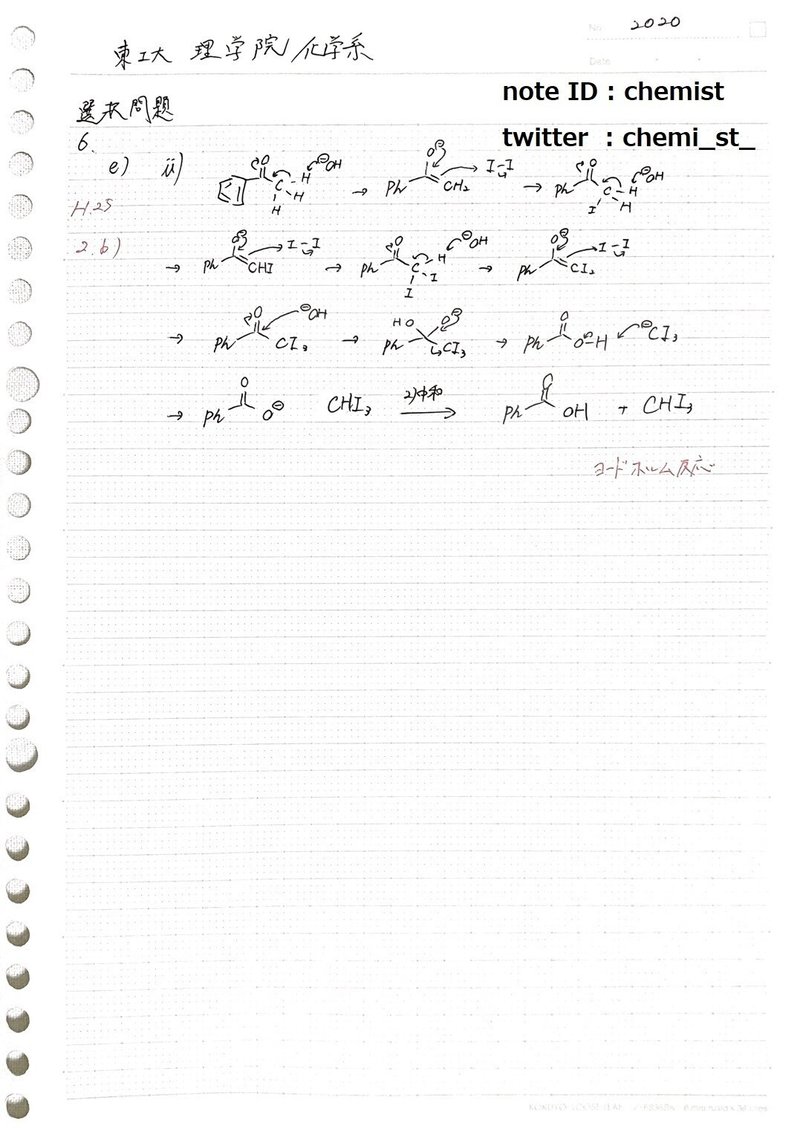 No. 2020
東工大 理学院/化学系
Date
note ID : chemist
選択問題
twitter : chemi_st_
6.
e) ii) O C H H H ⊖OH → Ph O⊖ CH₂ I-I → Ph O C H I H ⊖OH
H.25
2.b)
→ Ph O⊖ CHI I-I → Ph O C H I I ⊖OH → Ph O⊖ CI₂ I-I
→ Ph O CI₃ ⊖OH → HO O⊖ Ph CI₃ → Ph O O-H ⊖CI₃
→ Ph O O⊖ CHI₃ 2)中和 → Ph O OH + CHI₃
ヨードホルム反応